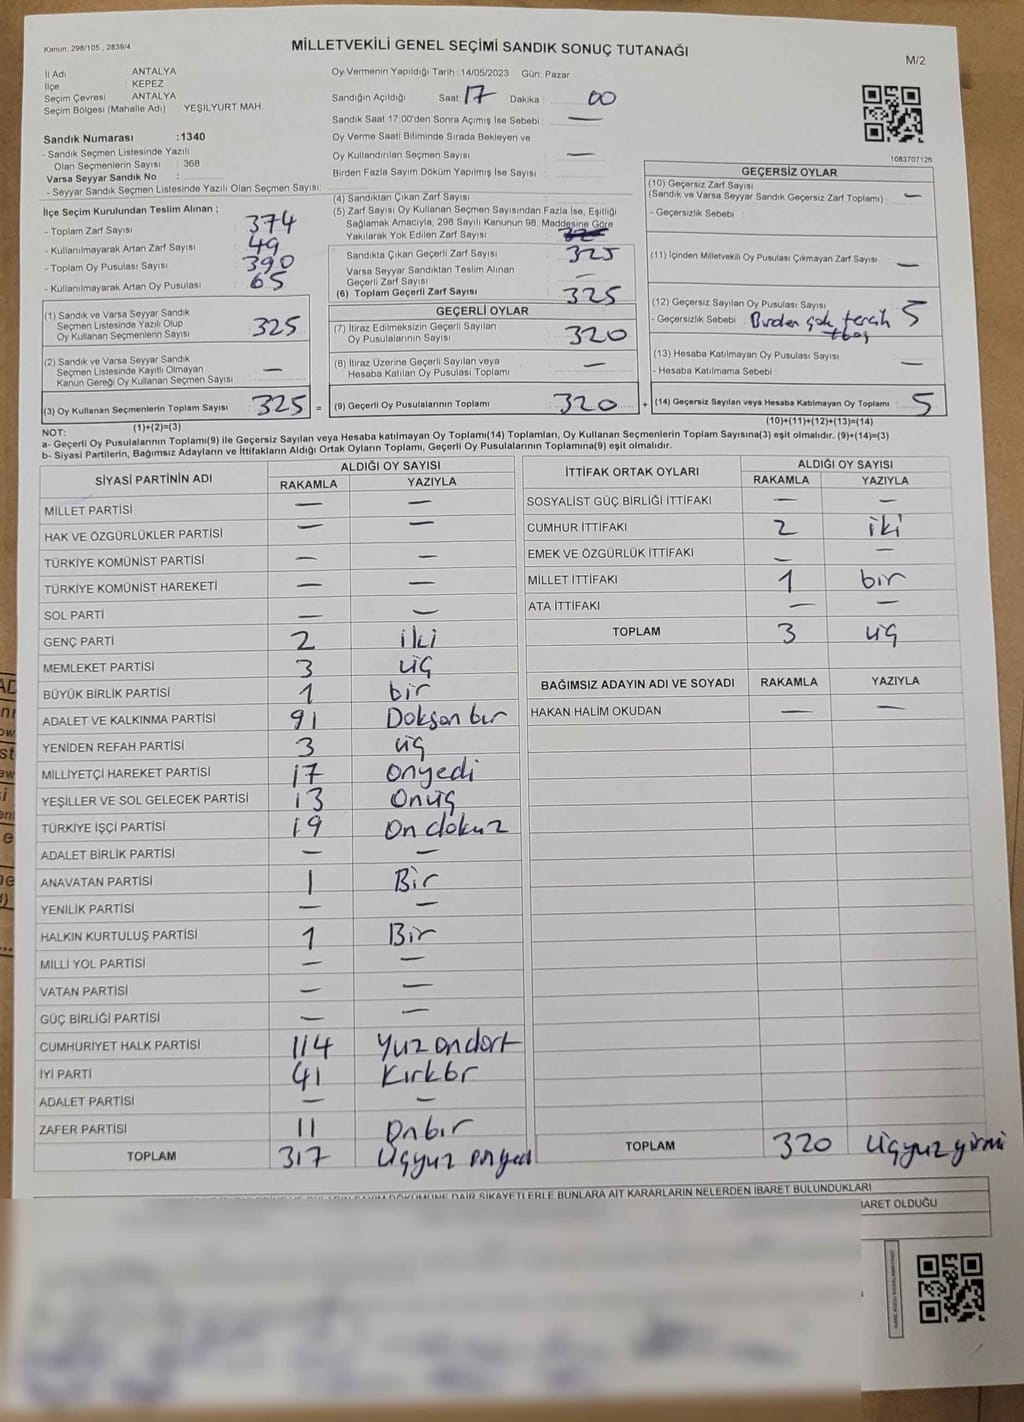 Kanun: 298/105 , 2839/4
MİLLETVEKİLİ GENEL SEÇİMİ SANDIK SONUÇ TUTANAĞI
M/2
İl Adı : ANTALYA
İlçe : KEPEZ
Seçim Çevresi : ANTALYA
Seçim Bölgesi (Mahalle Adı) : YEŞİLYURT MAH.
Sandık Numarası :1340
- Sandık Seçmen Listesinde Yazılı
Olan Seçmenlerin Sayısı : 368
Varsa Seyyar Sandık No :
- Seyyar Sandık Seçmen Listesinde Yazılı Olan Seçmen Sayısı:
İlçe Seçim Kurulundan Teslim Alınan ;
- Toplam Zarf Sayısı : 374
- Kullanılmayarak Artan Zarf Sayısı : 49
- Toplam Oy Pusulası Sayısı : 390
- Kullanılmayarak Artan Oy Pusulası : 65
(1) Sandık ve Varsa Seyyar Sandık
Seçmen Listesinde Yazılı Olup
Oy Kullanan Seçmenlerin Sayısı : 325
(2) Sandık ve Varsa Seyyar Sandık
Seçmen Listesinde Kayıtlı Olmayan
Kanun Gereği Oy Kullanan Seçmen Sayısı : —
(3) Oy Kullanan Seçmenlerin Toplam Sayısı : 325 =
(1)+(2)=(3)
Oy Vermenin Yapıldığı Tarih :14/05/2023 Gün: Pazar
Sandığın Açıldığı Saat: 17 Dakika : 00
Sandık Saat 17:00'den Sonra Açımış İse Sebebi : —
Oy Verme Saati Bitiminde Sırada Bekleyen ve
Oy Kullandırılan Seçmen Sayısı : —
Birden Fazla Sayım Döküm Yapılmış İse Sayısı :
(4) Sandıktan Çıkan Zarf Sayısı :
(5) Zarf Sayısı Oy Kullanan Seçmen Sayısından Fazla İse, Eşitliği
Sağlamak Amacıyla; 298 Sayılı Kanunun 98. Maddesine Göre
Yakılarak Yok Edilen Zarf Sayısı :
Sandıkta Çıkan Geçerli Zarf Sayısı : 325
Varsa Seyyar Sandıktan Teslim Alınan
Geçerli Zarf Sayısı : —
(6) Toplam Geçerli Zarf Sayısı : 325
GEÇERLİ OYLAR
(7) İtiraz Edilmeksizin Geçerli Sayılan
Oy Pusulalarının Sayısı : 320
(8) İtiraz Üzerine Geçerli Sayılan veya
Hesaba Katılan Oy Pusulası Toplamı : —
(9) Geçerli Oy Pusulalarının Toplamı : 320 +
1083707126
GEÇERSİZ OYLAR
(10) Geçersiz Zarf Sayısı
(Sandık ve Varsa Seyyar Sandık Geçersiz Zarf Toplamı) : —
- Geçersizlik Sebebi :
(11) İçinden Milletvekili Oy Pusulası Çıkmayan Zarf Sayısı : —
(12) Geçersiz Sayılan Oy Pusulası Sayısı : 5
- Geçersizlik Sebebi : Birden çok tercih
(13) Hesaba Katılmayan Oy Pusulası Sayısı : —
- Hesaba Katılmama Sebebi :
(14) Geçersiz Sayılan veya Hesaba Katılmayan Oy Toplamı : 5
(10)+(11)+(12)+(13)=(14)
NOT:
a- Geçerli Oy Pusulalarının Toplamı(9) ile Geçersiz Sayılan veya Hesaba katılmayan Oy Toplamı(14) Toplamları, Oy Kullanan Seçmenlerin Toplam Sayısına(3) eşit olmalıdır. (9)+(14)=(3)
b- Siyasi Partilerin, Bağımsız Adayların ve İttifakların Aldığı Ortak Oyların Toplamı, Geçerli Oy Pusulalarının Toplamına(9) eşit olmalıdır.
SİYASİ PARTİNİN ADI ALDIĞI OY SAYISI
RAKAMLA YAZIYLA
MİLLET PARTİSİ — —
HAK VE ÖZGÜRLÜKLER PARTİSİ — —
TÜRKİYE KOMÜNİST PARTİSİ — —
TÜRKİYE KOMÜNİST HAREKETİ — —
SOL PARTİ — —
GENÇ PARTİ 2 iki
MEMLEKET PARTİSİ 3 üç
BÜYÜK BİRLİK PARTİSİ 1 bir
ADALET VE KALKINMA PARTİSİ 91 Doksan bir
YENİDEN REFAH PARTİSİ 3 üç
MİLLİYETÇİ HAREKET PARTİSİ 17 onyedi
YEŞİLLER VE SOL GELECEK PARTİSİ 13 Onüç
TÜRKİYE İŞÇİ PARTİSİ 19 On dokuz
ADALET BİRLİK PARTİSİ — —
ANAVATAN PARTİSİ 1 Bir
YENİLİK PARTİSİ — —
HALKIN KURTULUŞ PARTİSİ 1 Bir
MİLLİ YOL PARTİSİ — —
VATAN PARTİSİ — —
GÜÇ BİRLİĞİ PARTİSİ — —
CUMHURİYET HALK PARTİSİ 114 Yuz ondört
İYİ PARTİ 41 Kırkbr
ADALET PARTİSİ — —
ZAFER PARTİSİ 11 Onbır
TOPLAM 317 Üçyuz onyedi
İTTİFAK ORTAK OYLARI ALDIĞI OY SAYISI
RAKAMLA YAZIYLA
SOSYALİST GÜÇ BİRLİĞİ İTTİFAKI — —
CUMHUR İTTİFAKI 2 iki
EMEK VE ÖZGÜRLÜK İTTİFAKI — —
MİLLET İTTİFAKI 1 bir
ATA İTTİFAKI — —
TOPLAM 3 üç
BAĞIMSIZ ADAYIN ADI VE SOYADI RAKAMLA YAZIYLA
HAKAN HALİM OKUDAN — —
TOPLAM 320 üçyuz yirmi
DÖKÜMÜNE DAİR ŞİKAYETLERLE BUNLARA AİT KARARLARIN NELERDEN İBARET BULUNDUKLARI
İBARET OLDUĞU